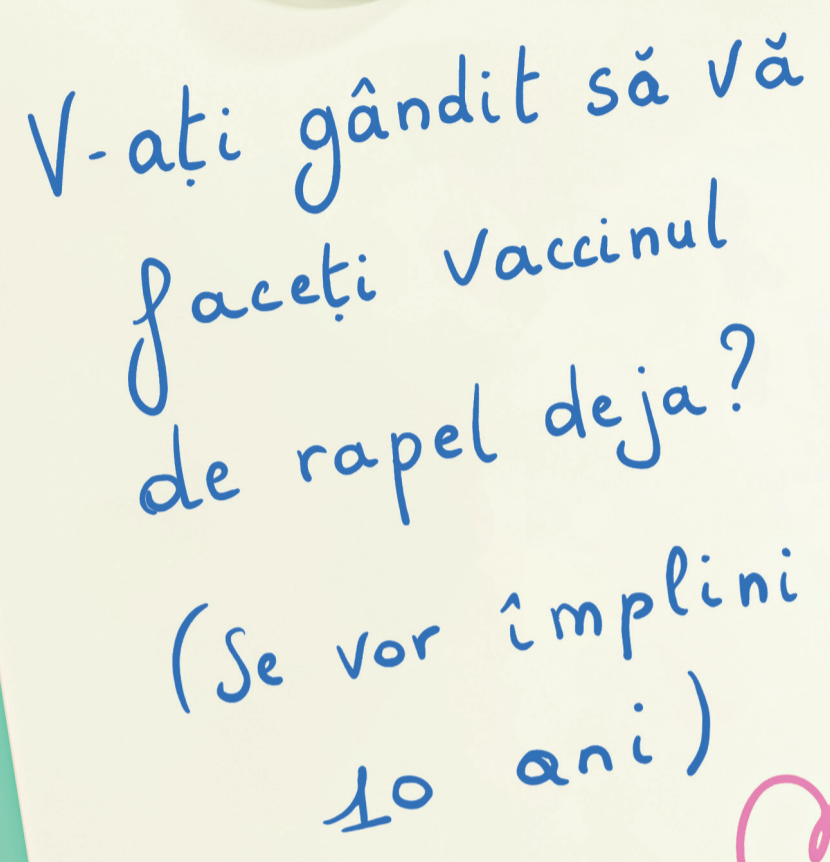 V-ați gândit să vă
faceți vaccinul
de rapel deja?
(Se vor împlini
10 ani)